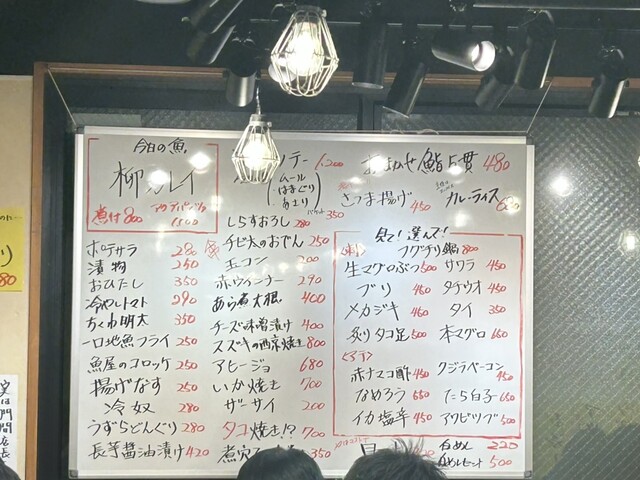 今日の魚
柳カレイ
煮付 800
1500
ムール
はまぐり
あさり
1,200
バケット 350
鮨5貫 480
さつま揚げ 450
カレーライス
ポテサラ 280
漬物 250
おひたし 350
冷やしトマト 290
ちくわ明太 350
一口地魚フライ 250
魚屋のコロッケ 250
揚げなす 250
冷奴 280
うずらどんぐり 280
長芋醤油漬け 420
しらすおろし 280
チビ太のおでん 250
玉コン 200
赤ウィンナー 290
あら煮大根 400
チーズ味噌漬け 400
スズキの西京焼き 800
アヒージョ 680
いか焼き 700
ザーサイ 200
タコ焼き!? 700
煮穴子 350
見て!選んで!
フグチリ鍋 800
生マグロぶつ 500
ブリ 450
メカジキ 450
炙りタコ足 500
サワラ 450
タチウオ 450
タイ 350
本マグロ 650
赤ナマコ酢 450
なめろう 550
イカ塩辛 450
クジラベーコン 450
たら白子 650
アワビツブ 500
白めし 220
白めしセット 500